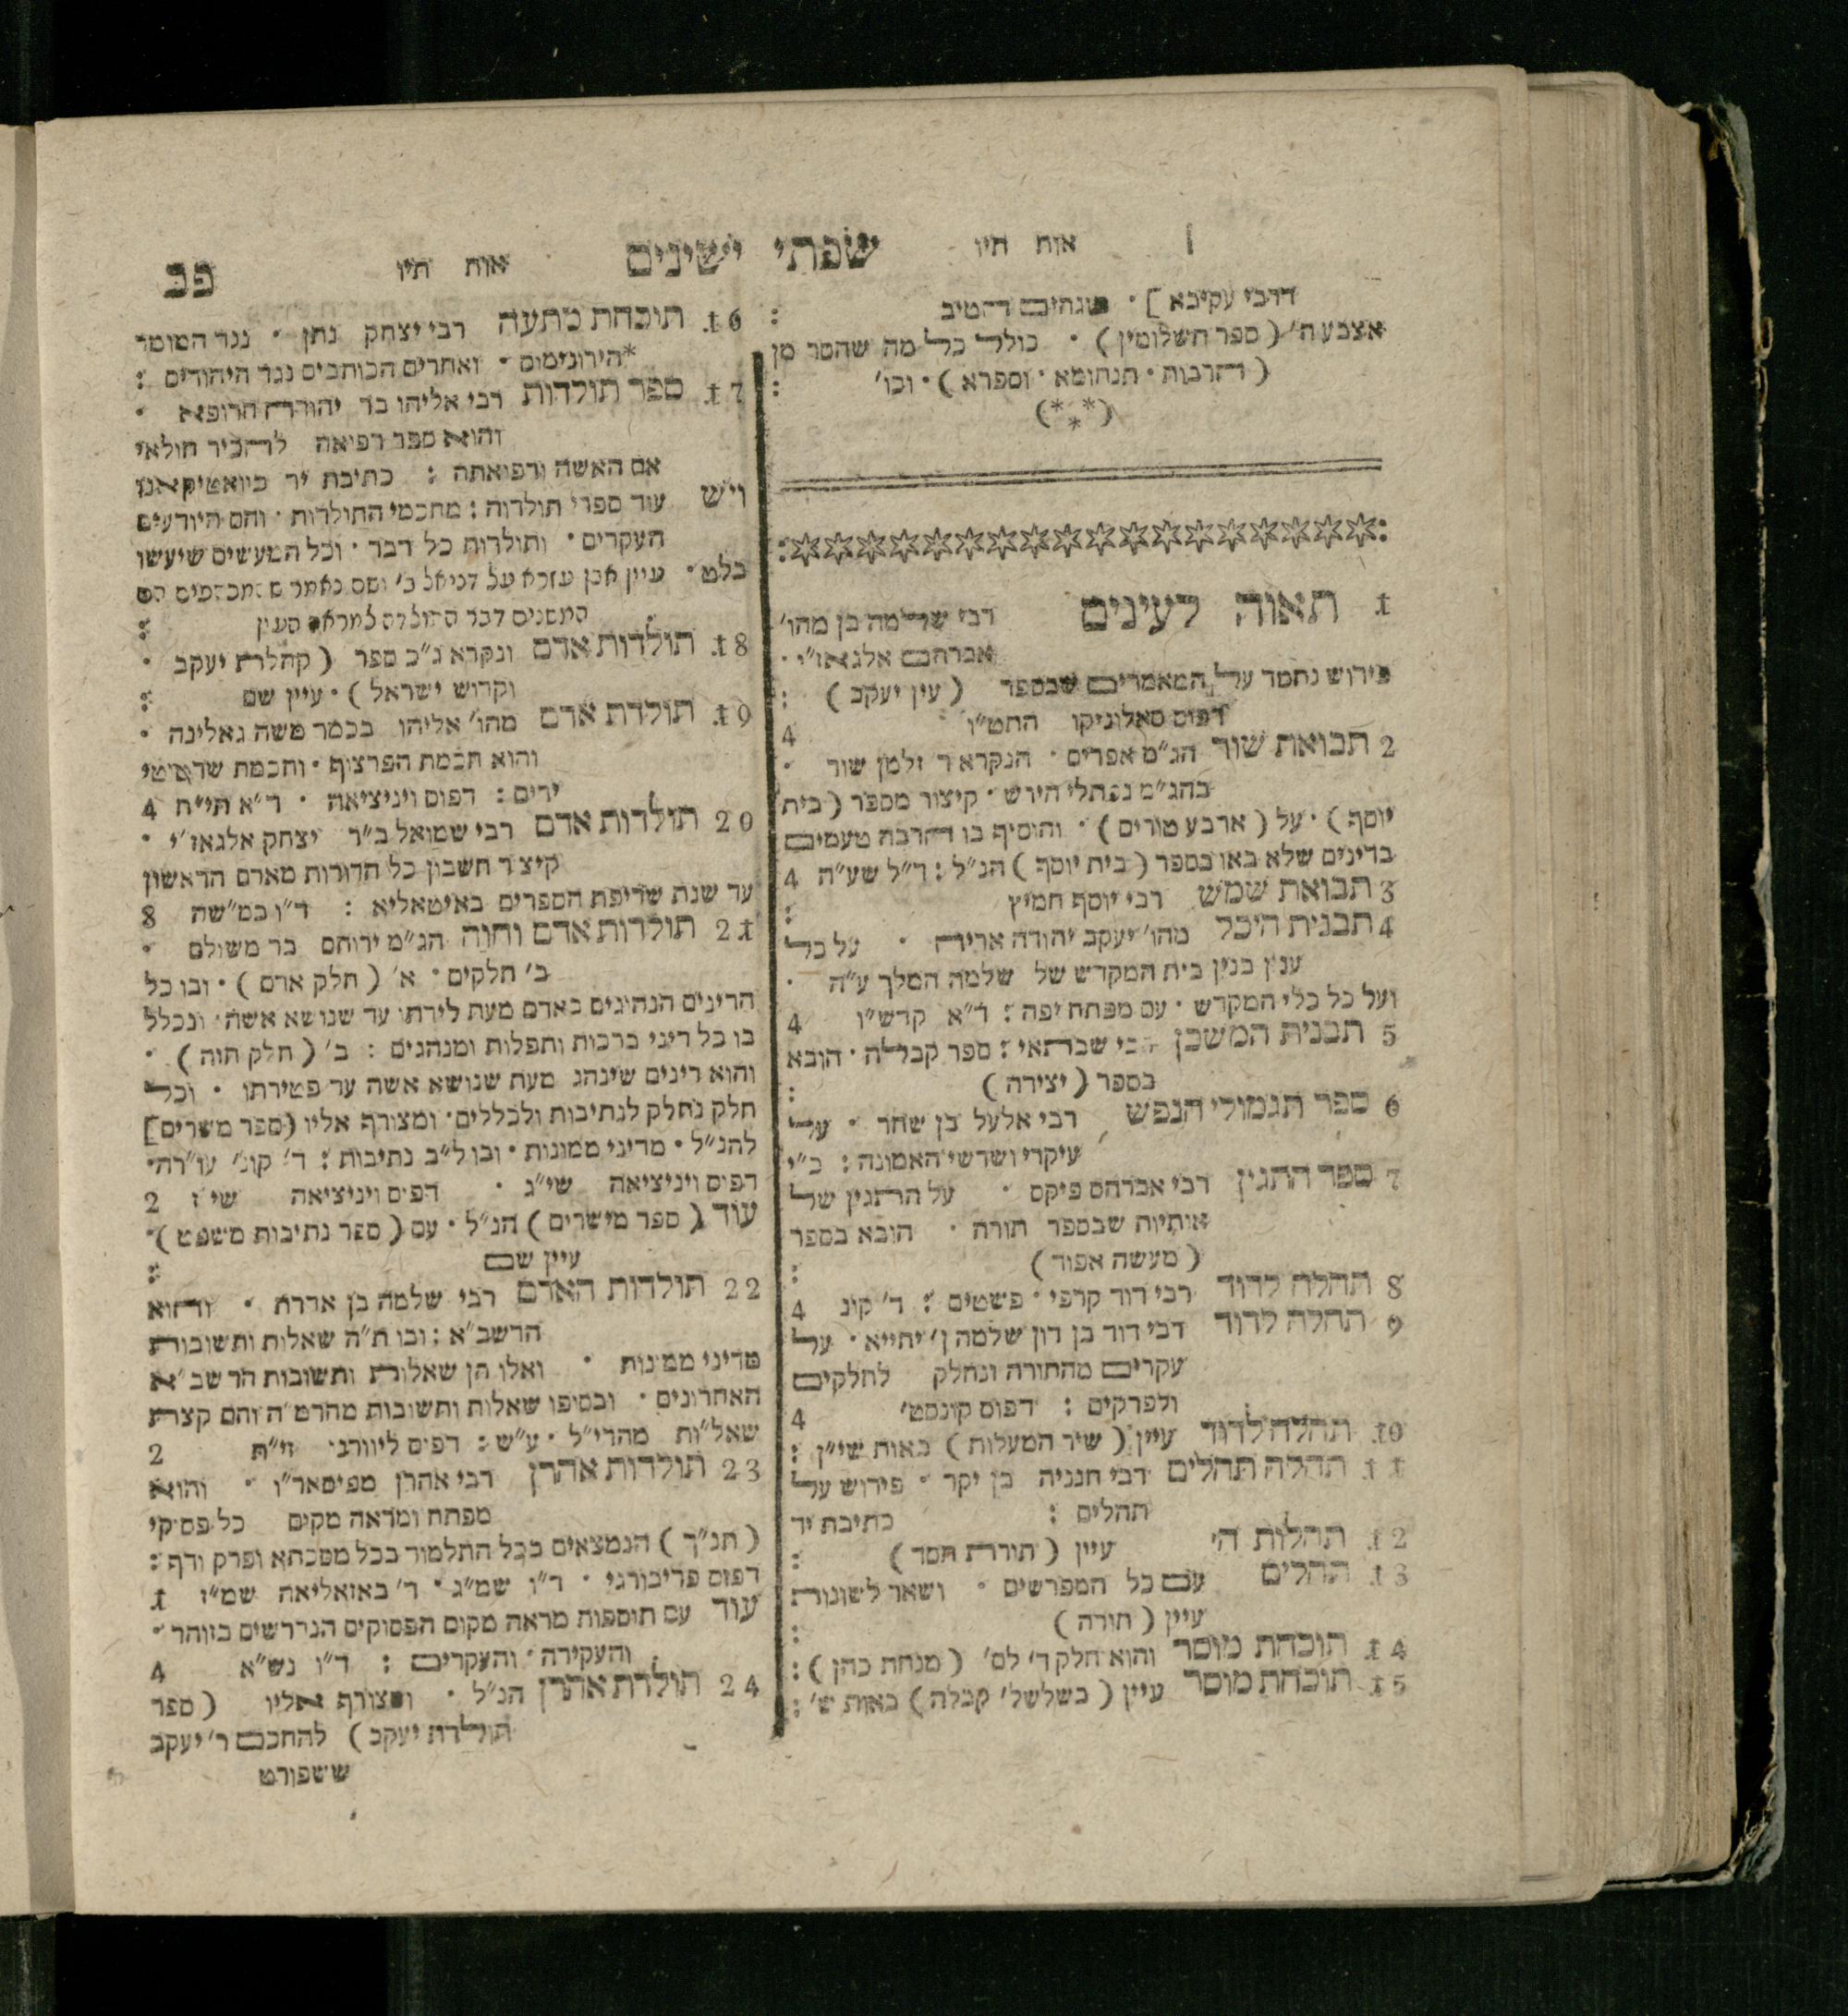 אות תיו שפתי ישינים אות תיו פב
דרבי עקיבא] · שנחים להטיב :
אצבע ה׳ (ספר תשלומין) · כולל כל מה שחסר מן
(הרבות · תנחומא · וספרא) · וכו׳ :
(***)
1 תאוה לעינים רבי שלמה בן מהו׳
אברהם אלגאזי ·
פירוש נחמד על המאמרים שבספר (עין יעקב) :
דפוס סאלוניקו התט״ו 4
2 תבואת שור הג״מ אפרים · הנקרא ר זלמן שור ·
בהג״מ נפתלי הירש · קיצור מספר (בית
יוסף) · על (ארבע טורים) · והוסיף בו הרבה טעמים
בדינים שלא באו בספר (בית יוסף) הנ״ל : ד״ל שע״ה 4
3 תבואת שמש רבי יוסף חמיץ :
4 תבנית היכל מהו׳ יעקב יהודה אריה · על כל
ענין בנין בית המקדש של שלמה המלך ע״ה ·
ועל כל כלי המקדש · עם מפתח יפה : ד״א קדש״ו 4
5 תבנית המשכן רבי שבתאי : ספר קבלה · הובא
בספר (יצירה) :
6 ספר תגמולי הנפש רבי אלעל בן שחר · על
עיקרי ושרשי האמונה : כ״י
7 ספר התגין רבי אברהם פיקס · על התגין של
אותיות שבספר תורה · הובא בספר
(מעשה אפוד) :
8 תהלה לדוד רבי דוד קרפי · פשטים : ד׳ קונ 4
9 תהלה לדוד רבי דוד בן דון שלמה ן׳ יחייא · על
עקרים מהתורה ונחלק לחלקים
ולפרקים : דפוס קונסט׳ 4
10 תהלה לדוד עיין (שיר המעלות) באות שי״ן :
11 תהלה תהלים רבי חנניה בן יקר · פירוש על
תהלים : כתיבת יד
12 תהלות ה׳ עיין (תורת חסד) :
13 תהלים עם כל המפרשים · ושאר לשונות
עיין (תורה) :
14 תוכחת מוסר והוא חלק ד׳ לס׳ (מנחת כהן) :
15 תוכחת מוסר עיין (בשלשל׳ קבלה) באות ש׳ :
16 תוכחת מתעה רבי יצחק נתן · נגד המומר
*הירונימוס · ואחרים הכותבים נגד היהודים :
17 ספר תולדות רבי אליהו בר יהודה הרופא ·
והוא ספר רפואה להכיר חולאי
אם האשה ורפואתה : כתיבת יד בוואטיקאנו
ויש עוד ספרי תולדות : מחכמי התולדות · והם היודעים
העקרים · ותולדות כל דבר · וכל המעשים שיעשו
בלט · עיין אבן עזרא על דניאל ב׳ ושם נאמר
המשנים דבר התולדת למראה העין :
18 תולדות אדם ונקרא ג״כ ספר (קהלת יעקב ·
וקדוש ישראל) · עיין שם :
19 תולדת אדם מהו׳ אליהו בכמר משה גאלינה ·
והוא חכמת הפרצוף · וחכמת שרטוטי
ידים : דפוס ויניציאה · ד״א תי״ח 4
20 תולדות אדם רבי שמואל ב״ר יצחק אלגאזי ·
קיצר חשבון כל הדורות מאדם הראשון
עד שנת שריפת הספרים באיטאליא : ד״ו במ״שה 8
21 תולדות אדם וחוה הג״מ ירוחם בר משולם ·
ב׳ חלקים · א׳ (חלק אדם) · ובו כל
הדינים הנהיגים באדם מעת לידתו עד שנושא אשה · ונכלל
בו כל דיני ברכות ותפלות ומנהגים : ב׳ (חלק חוה) ·
והוא דינים שינהג מעת שנושא אשה עד פטירתו · וכל
חלק נחלק לנתיבות ולכללים · ומצורף אליו (ספר משרים]
להנ״ל · מדיני ממונות · ובו ל״ב נתיבות : ד׳ קונ׳ עו״רה ·
דפוס ויניציאה שי״ג · דפוס ויניציאה שי ז 2
עוד (ספר מישרים) הנ״ל · עם (ספר נתיבות משפט) ·
עיין שם :
22 תולדות האדם רבי שלמה בן אדרת · והוא
הרשב״א : ובו ת״ה שאלות ותשובות
מדיני ממונות · ואלו הן שאלות ותשובות הרשב״א
האחרונים · ובסופו שאלות ותשובות מהרמ״ה והם קצרת
שאל״ות מהרי״ל · ע״ש : דפוס ליוורני 2
23 תולדות אהרן רבי אהרן מפיסאר״ו · והוא
מפתח ומראה מקום כל פסוקי
(תנ״ך) הנמצאים בכל התלמוד בכל מסכתא ופרק ודף :
דפוס פריבורגי · ד״ו שמ״ג · ד׳ באזאליאה שמ״ז 1
עוד עם תוספות מראה מקום הפסוקים הנדרשים בזוהר ·
והעקידה · והעקרים : ד״ו נש״א 4
24 תולדת אהרן הנ״ל · ומצורף אליו (ספר
תולדת יעקב) להחכם ר׳ יעקב
ששפורט